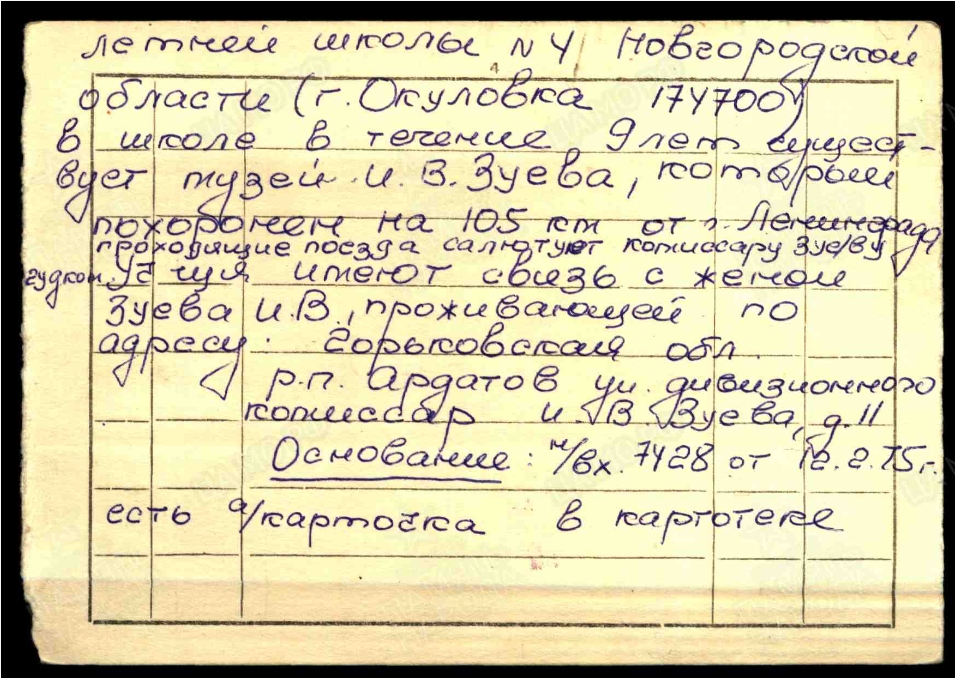 летней школы N 4 Новгородской
области (г. Окуловка 174700)
в школе в течение 9 лет сущест-
вует музей И.В. Зуева, который
похоронен на 105 км от г. Ленинграда
проходящие поезда салютует комиссару Зуеву
гудком. Уч-ця имеют связь с женой
Зуева И.В, проживающей по
адресу: Горьковская обл.
р.п. Ардатов ул. дивизионного
комиссар И.В. Зуева, д. 11
Основание: н/вх. 7428 от 12.2.75 г.
есть а/карточка в картотеке